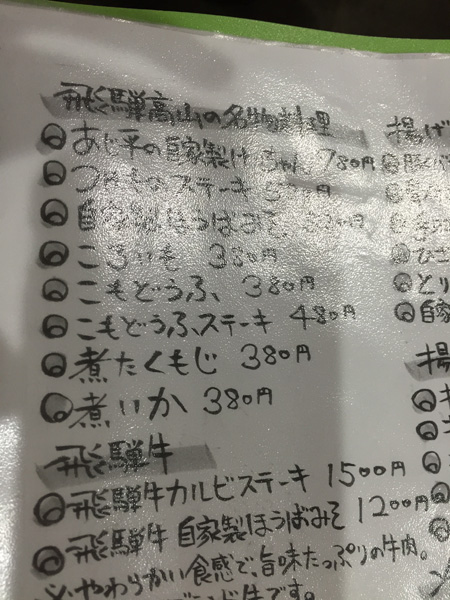 飛騨高山の名物料理
◎あじ平の自家製けいちゃん 780円
◎つけものステーキ
◎自家製ほうばみそ
◎ころいも 380円
◎こもどうふ 380円
◎こもどうふステーキ 480円
◎煮たくもじ 380円
◎煮いか 380円
飛騨牛
◎飛騨牛カルビステーキ 1500円
◎飛騨牛 自家製ほうばみそ 1200円
※やわらかい食感で、旨味たっぷりの牛肉。
ド牛です。
揚げ
◎
◎
◎
◎ひこ
◎とり
◎自家
揚
◎
◎